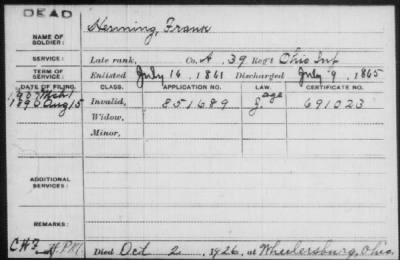 DEAD
NAME OF SOLDIER: Henning, Frank
SERVICE: Late rank, Co. A, 39 Reg't Ohio Inf
TERM OF SERVICE: Enlisted July 16, 1861 Discharged July 9, 1865
DATE OF FILING. CLASS. APPLICATION NO. LAW. CERTIFICATE NO.
1907 Mch 1 age
1890 Aug 15 Invalid, 851689 J. 691023
Widow,
Minor,
ADDITIONAL SERVICES:
REMARKS:
Died Oct 2, 1926, at Wheelersburg, Ohio.